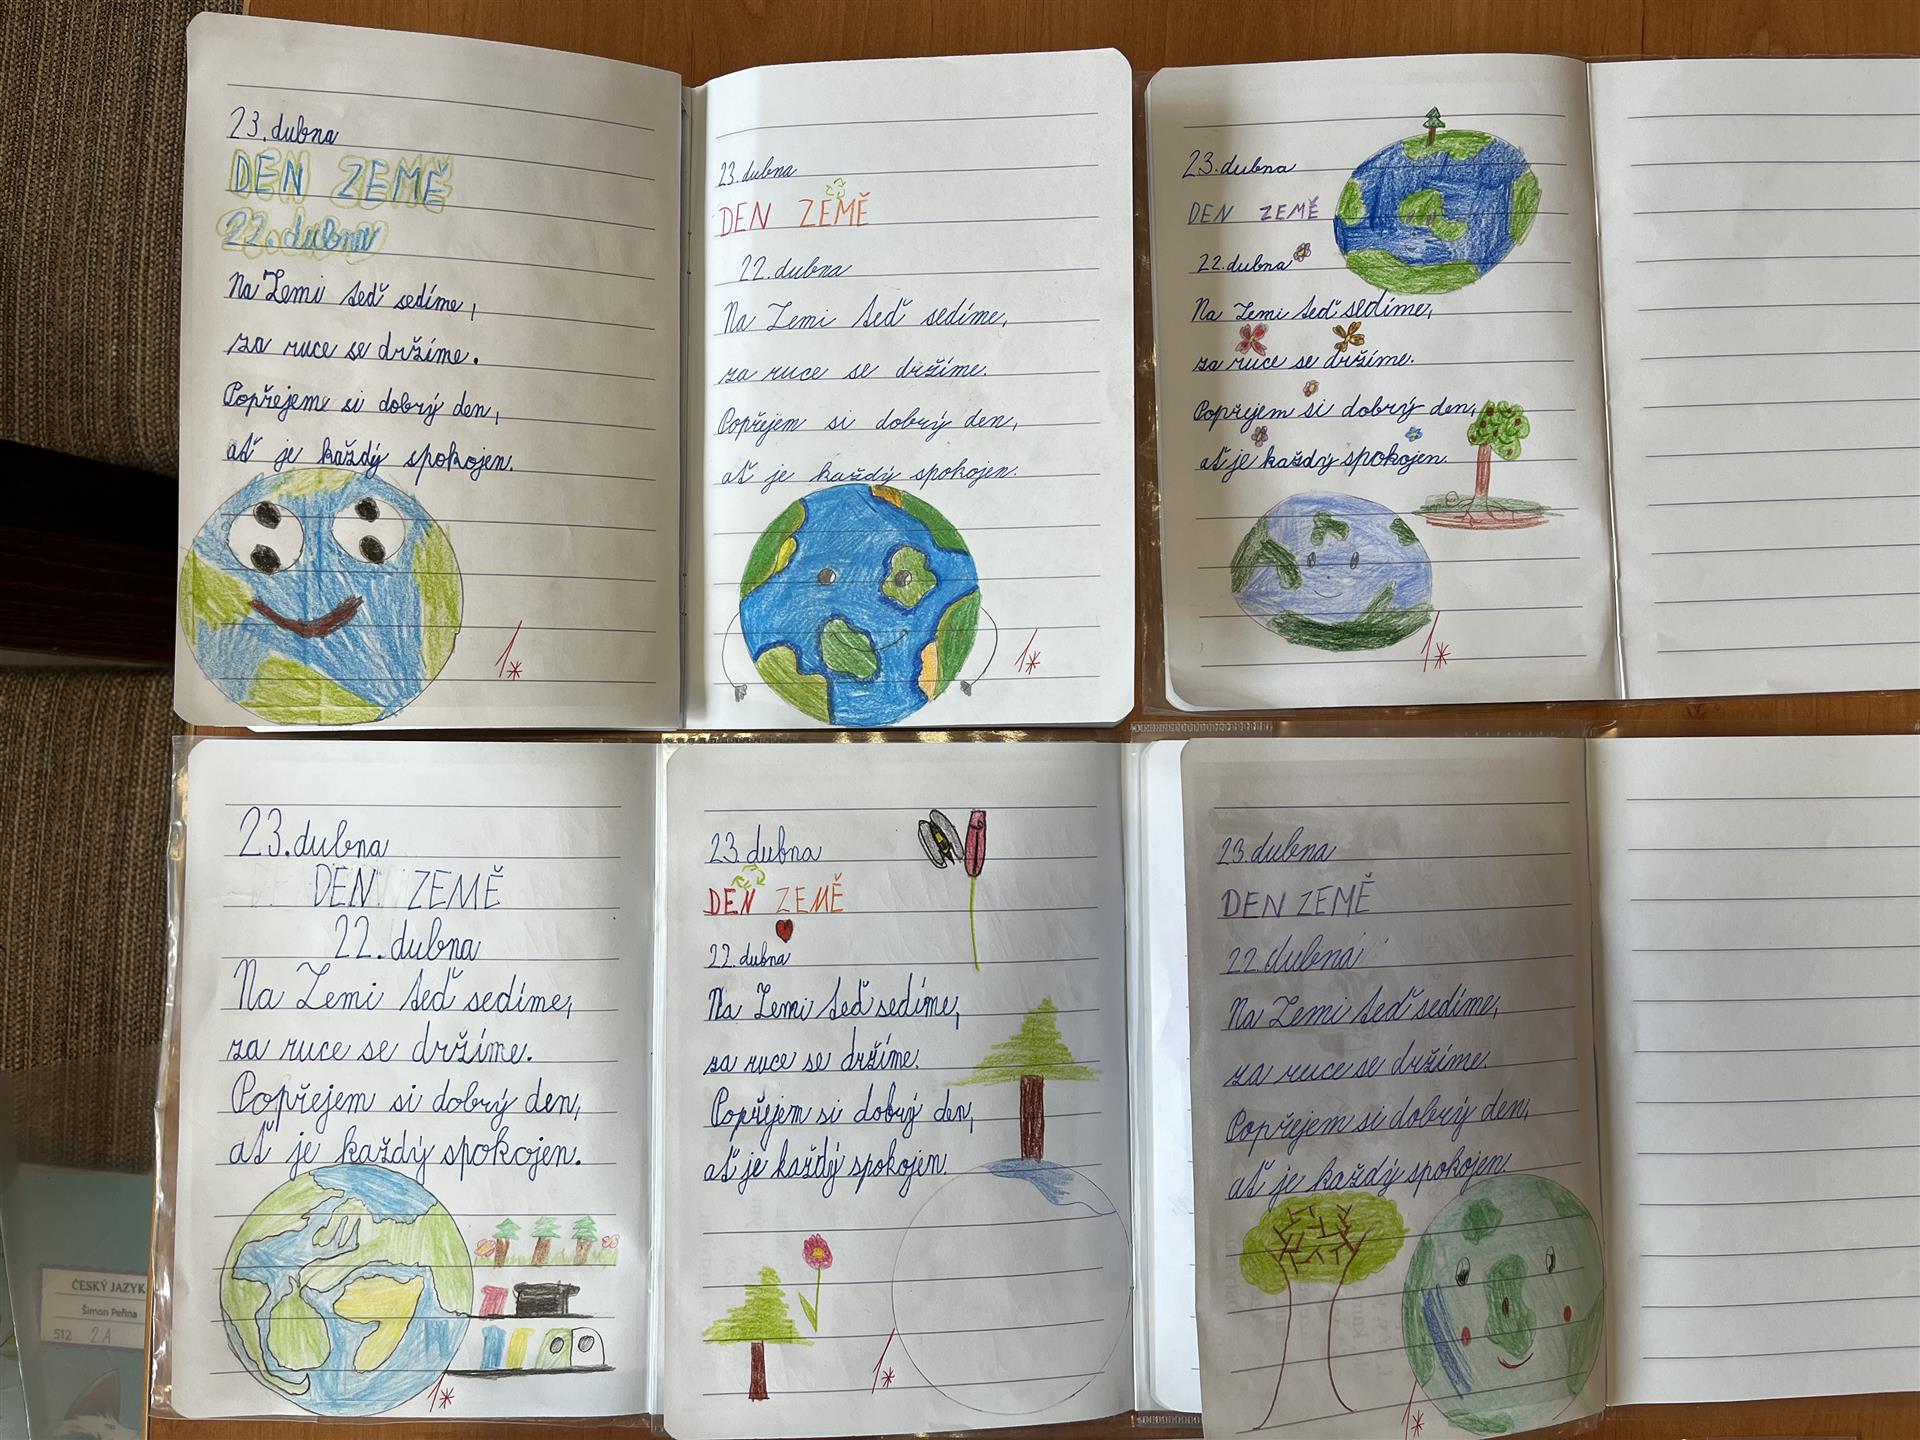 23. dubna
DEN ZEMĚ
22. dubna
Na Zemi teď sedíme,
za ruce se držíme.
Popřejeme si dobrý den,
ať je každý spokojen.
1*
23. dubna
DEN ZEMĚ
22. dubna
Na Zemi teď sedíme,
za ruce se držíme.
Popřejem si dobrý den,
ať je každý spokojen.
1*
23. dubna
DEN ZEMĚ
22. dubna
Na Zemi teď sedíme,
za ruce se držíme.
Popřejem si dobrý den,
ať je každý spokojen.
1*
23. dubna
DEN ZEMĚ
22. dubna
Na Zemi teď sedíme,
za ruce se držíme.
Popřejem si dobrý den,
ať je každý spokojen.
1*
23. dubna
DEN ZEMĚ
22. dubna
Na Zemi teď sedíme,
za ruce se držíme.
Popřejem si dobrý den,
ať je každý spokojen.
1*
23. dubna
DEN ZEMĚ
22. dubna
Na Zemi teď sedíme,
za ruce se držíme.
Popřejem si dobrý den,
ať je každý spokojen.
1*
ČESKÝ JAZYK
Šimon Peřina
512 2A